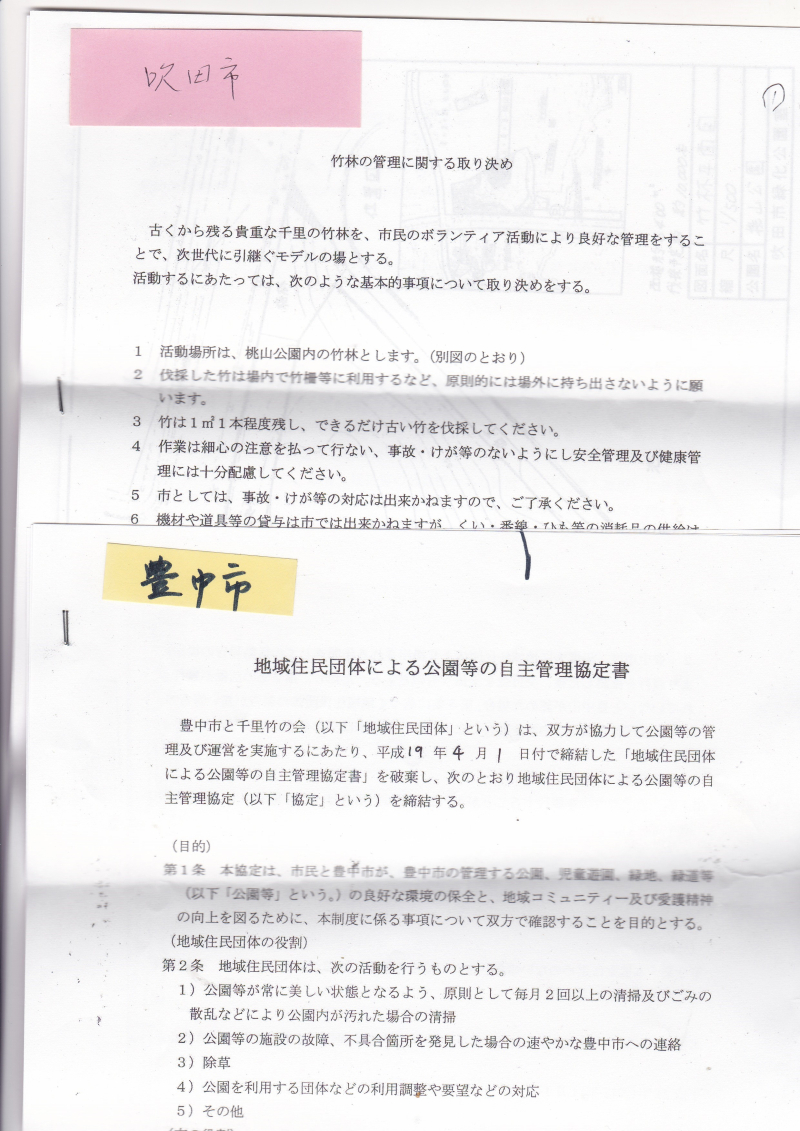 吹田市
①
竹林の管理に関する取り決め
古くから残る貴重な千里の竹林を、市民のボランティア活動により良好な管理をするこ
とで、次世代に引継ぐモデルの場とする。
活動するにあたっては、次のような基本的事項について取り決めをする。
1 活動場所は、桃山公園内の竹林とします。(別図のとおり)
2 伐採した竹は場内で竹柵等に利用するなど、原則的には場外に持ち出さないように願
います。
3 竹は1㎡1本程度残し、できるだけ古い竹を伐採してください。
4 作業は細心の注意を払って行ない、事故・けが等のないようにし安全管理及び健康管
理には十分配慮してください。
5 市としては、事故・けが等の対応は出来かねますので、ご了承ください。
6 機材や道具等の貸与は市では出来かねますが、くい・番線・ひも等の消耗品の供給は
豊中市
地域住民団体による公園等の自主管理協定書
豊中市と千里竹の会(以下「地域住民団体」という)は、双方が協力して公園等の管
理及び運営を実施するにあたり、平成19年4月1日付で締結した「地域住民団体
による公園等の自主管理協定書」を破棄し、次のとおり地域住民団体による公園等の自
主管理協定(以下「協定」という)を締結する。
(目的)
第1条 本協定は、市民と豊中市が、豊中市の管理する公園、児童遊園、緑地、緑道等
(以下「公園等」という。)の良好な環境の保全と、地域コミュニティー及び愛護精神
の向上を図るために、本制度に係る事項について双方で確認することを目的とする。
(地域住民団体の役割)
第2条 地域住民団体は、次の活動を行うものとする。
1)公園等が常に美しい状態となるよう、原則として毎月2回以上の清掃及びごみの
散乱などにより公園内が汚れた場合の清掃
2)公園等の施設の故障、不具合箇所を発見した場合の速やかな豊中市への連絡
3)除草
4)公園を利用する団体などの利用調整や要望などの対応
5)その他